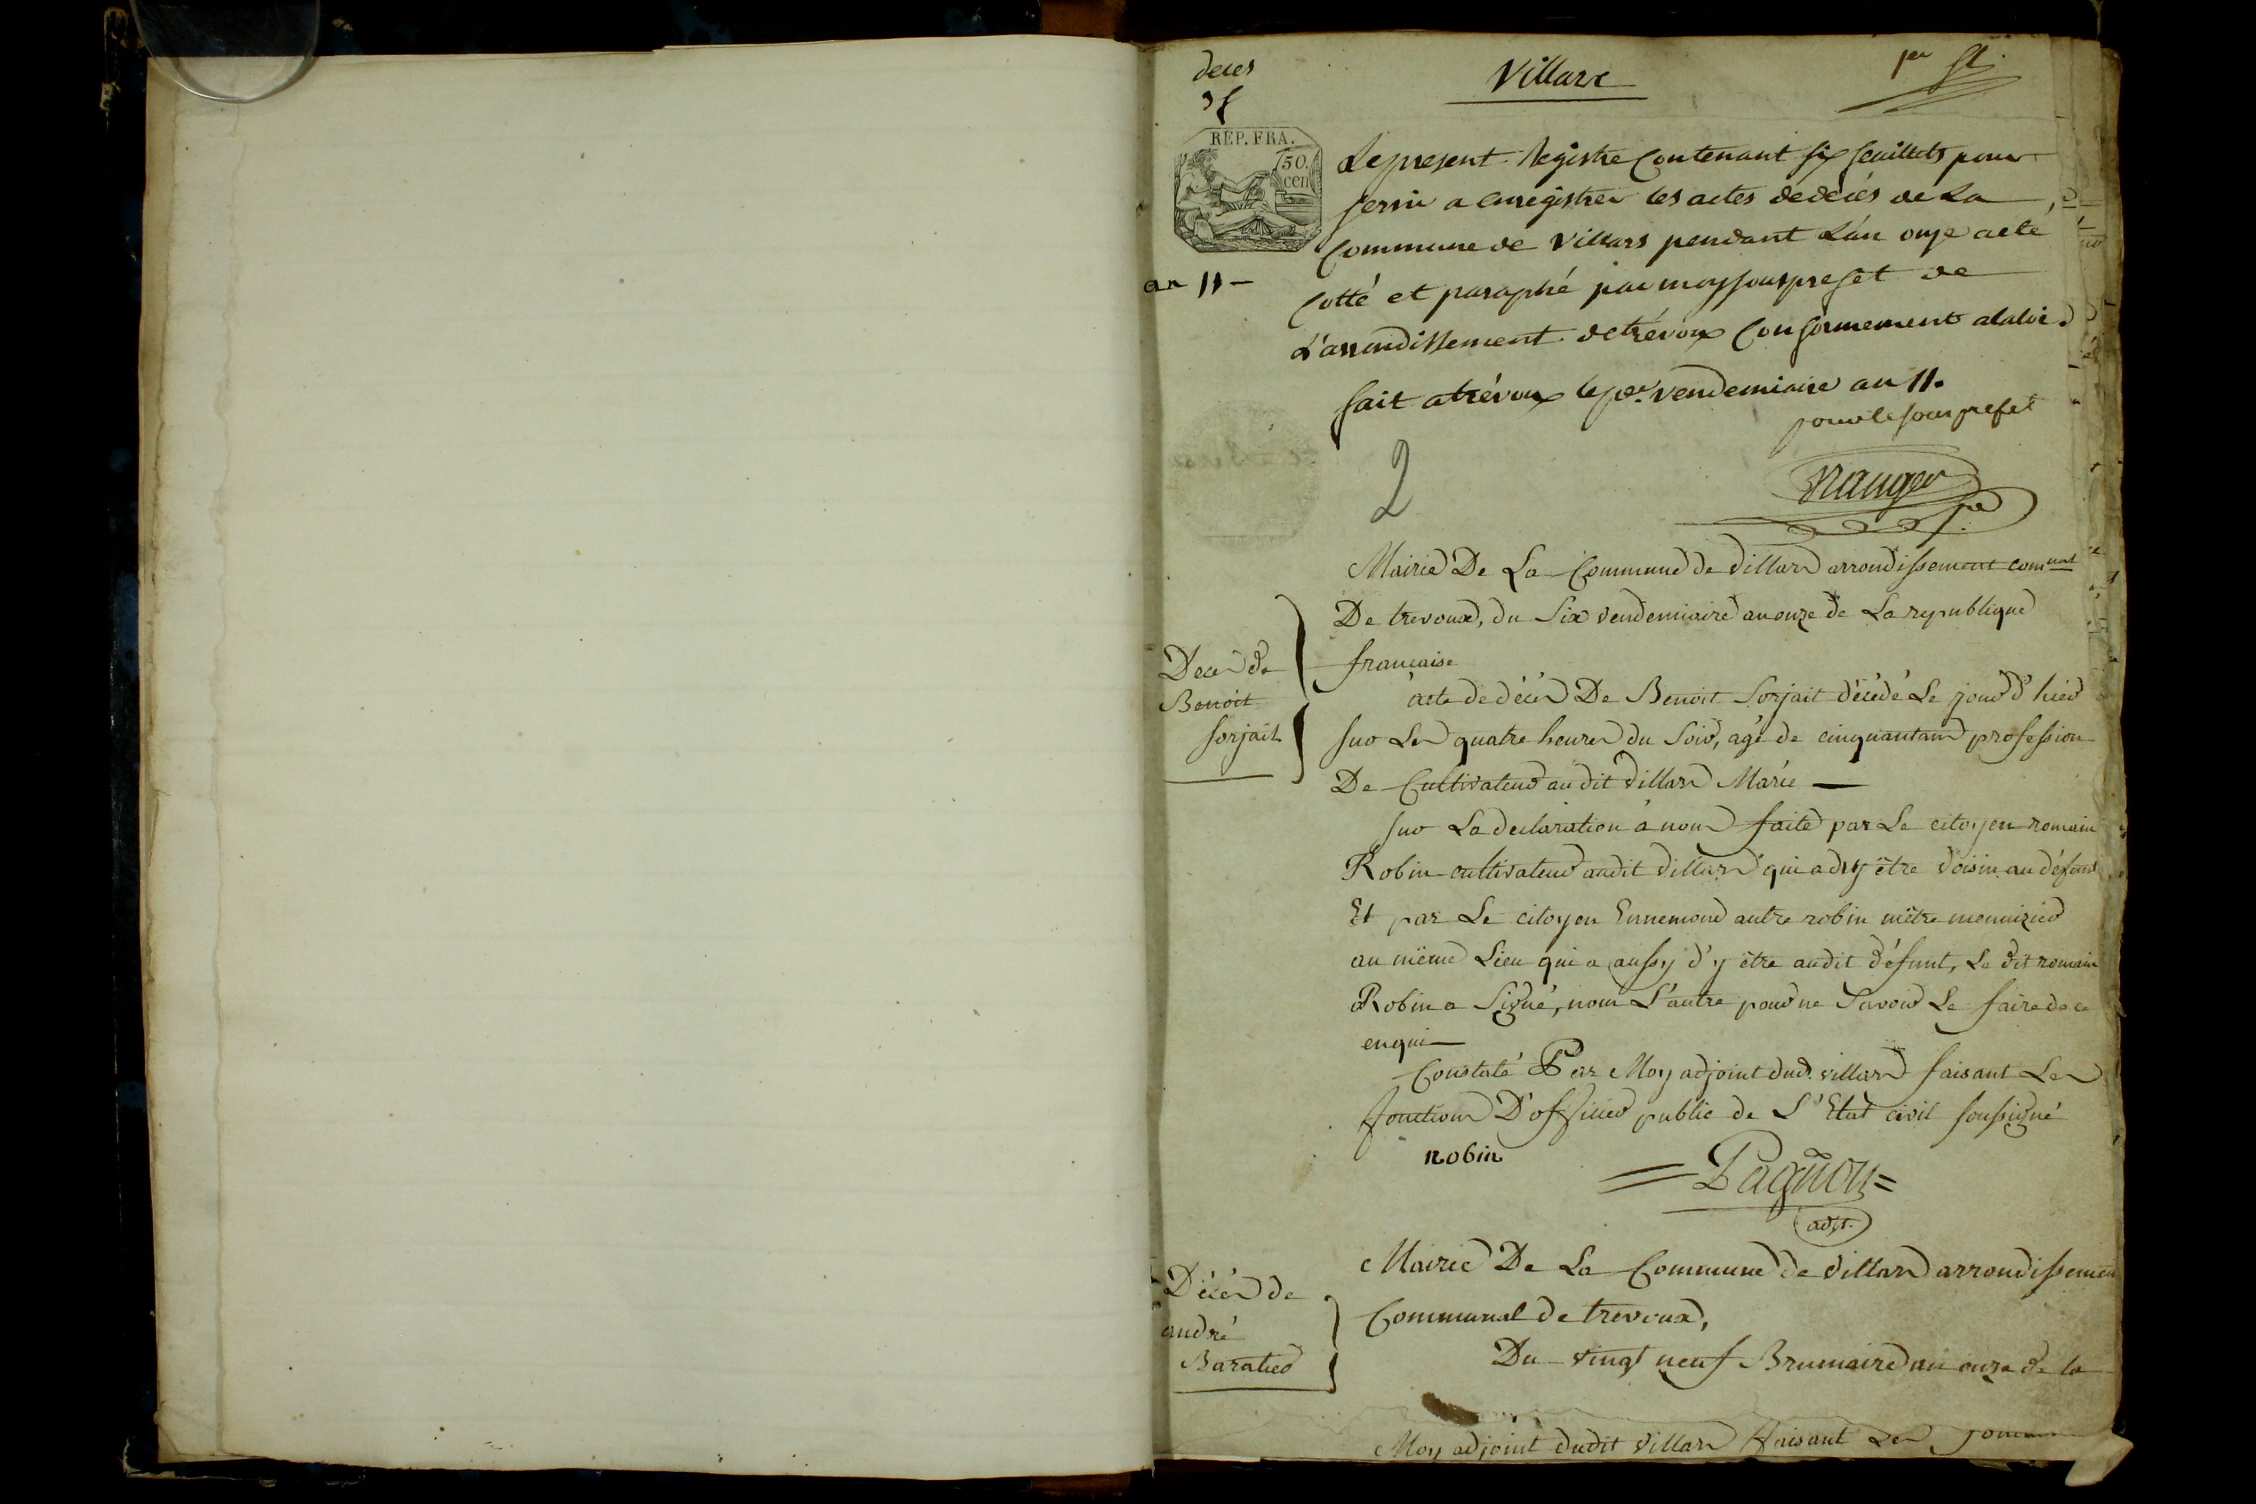 deces
Villars
per ft.
REP. FRA.
50.
cen
Le present Registre Contenant six feuillets pour
servir a enregistrer les actes de décés de La
Commune de Villars pendant L'an onze a eté
Cotté et paraphé par moy sous prefet de
L'arrondissement de trévoux Conformement a la loi.
an 11 -
fait a trévoux le per. vendemiaire an 11.
pour le sous prefet
2
Mairie De La Commune de Villars arrondissement comunal
De trevoux, du Six vendemiaire an onze de La republique
française
Décés de
Benoit
Sorjait
acte de décés De Benoit Sorjait décédé Le jour d'hier
sur Les quatre heures du Soir, agé de cinquantans profession
De Cultivateur au dit Villars Marié —
sur La declaration a nous faite par Le citoyen romain
Robin cultivateur audit Villars qui a dit y être voisin au défunt
Et par Le citoyen Ennemond autre robin mêtre menuizier
au même Lieu qui a aussy d'y être audit défunt, Le dit romain
Robin a Signé, non L'autre pour ne Savoir Le faire de ce
enquis
Constaté Par Moy adjoint dud. villars faisant Les
fonctions D'officier public de L'Etat civil soussigné
robin
= Pagnon =
adjt.
Mairie De La Commune de Villars arrondissemen
Communal de trevoux,
Décés de
andré
Baratier
Du vingt neuf Brumaire an onze de la
Moy adjoint dudit Villars faisant Les